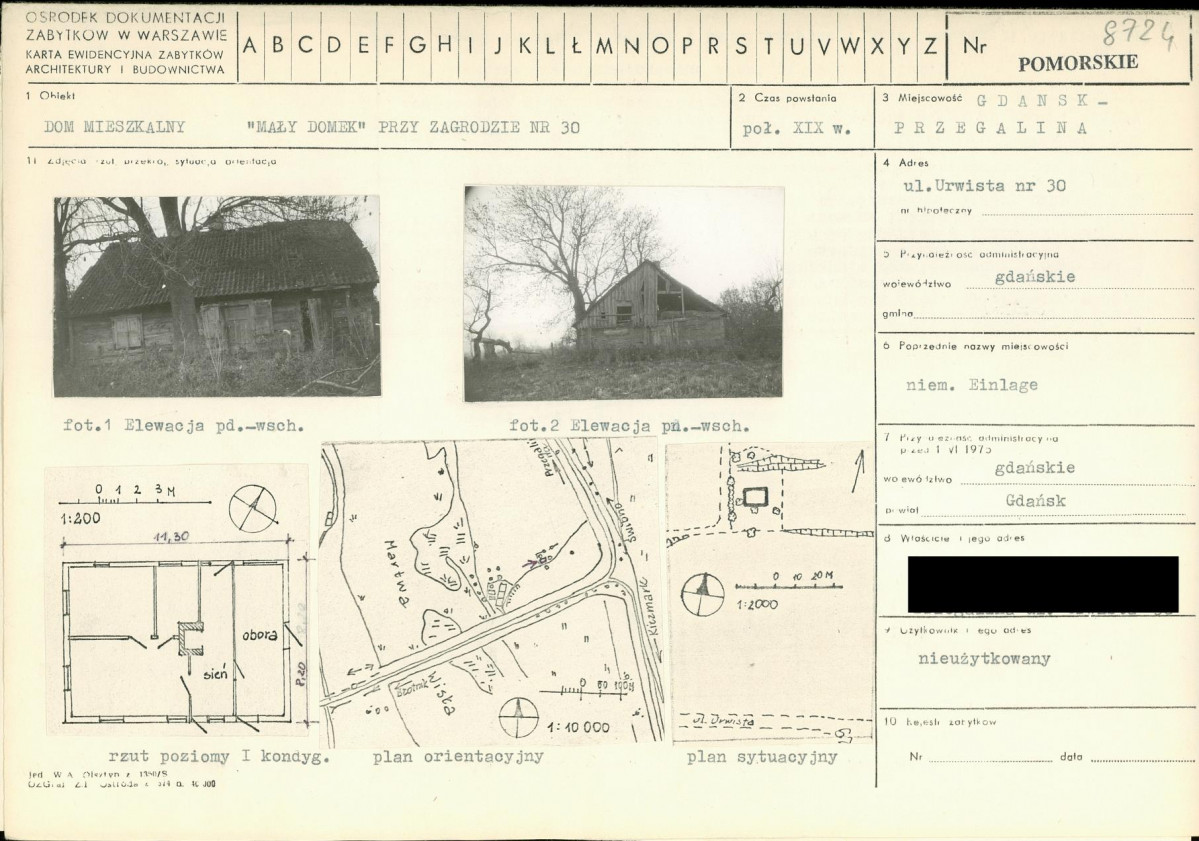 OŚRODEK DOKUMENTACJI
ZABYTKÓW W WARSZAWIE
KARTA EWIDENCYJNA ZABYTKÓW
ARCHITEKTURY I BUDOWNICTWA
A B C D E F G H I J K L Ł M N O P R S T U V W X Y Z
Nr
8724
POMORSKIE
1 Obiekt
DOM MIESZKALNY "MAŁY DOMEK" PRZY ZAGRODZIE NR 30
2 Czas powstania
poł. XIX w.
3 Miejscowość GDANSK-
PRZEGALINA
11 Zdjęcia rzut, przekrój, sytuacja orientacja
4 Adres
ul.Urwista nr 30
nr hipoteczny
5 Przynależność administracyjna
województwo gdańskie
gmina
6 Poprzednie nazwy miejscowości
niem. Einlage
7 Przynależność administracyjna
przed 1 VI 1975
województwo gdańskie
powiat Gdańsk
8 Właściciel i jego adres
9 Użytkownik i jego adres
nieużytkowany
10 Rejestr zabytków
Nr data
fot.1 Elewacja pd.-wsch.
fot.2 Elewacja pn.-wsch.
0 1 2 3 M
1:200
11,30
obora
sień
8,20
rzut poziomy I kondyg.
Martwa
Wisła
Świbno
Kiezmark
0 50 100M
1:10 000
plan orientacyjny
0 10 20M
1:2000
ul. Urwista
plan sytuacyjny